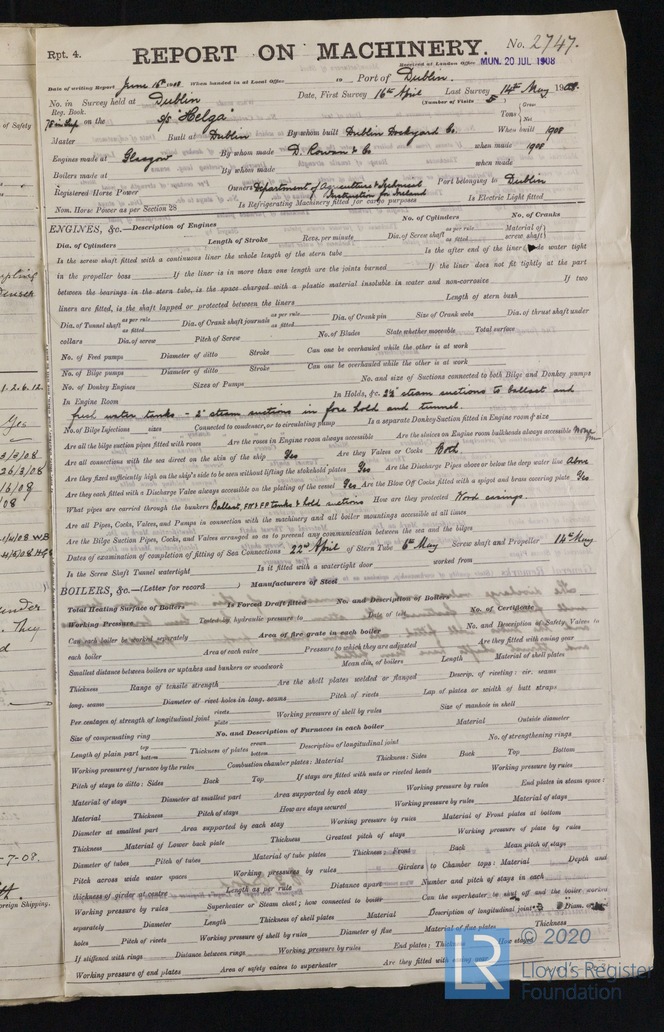 Rpt. 4.
REPORT ON MACHINERY.
No. 2747.
Received at London Office MON. 20 JUL 1908
Date of writing Report June 16th 1908 When handed in at Local Office 19 Port of Dublin.
No. in Survey held at Dublin Date, First Survey 16th April Last Survey 14th May 1908
Reg. Book. (Number of Visits 5)
78 in Sup on the S/S "Helga" Tons Gross Net
Master Built at Dublin By whom built Dublin Dockyard Co. When built 1908
Engines made at Glasgow By whom made D. Rowan & Co when made 1908
Boilers made at By whom made when made
Registered Horse Power Owners Department of Agriculture & Technical Instruction for Ireland Port belonging to Dublin
Nom. Horse Power as per Section 28 Is Refrigerating Machinery fitted for cargo purposes Is Electric Light fitted
ENGINES, &c.—Description of Engines No. of Cylinders No. of Cranks
Dia. of Cylinders Length of Stroke Revs. per minute Dia. of Screw shaft as per rule as fitted Material of screw shaft
Is the screw shaft fitted with a continuous liner the whole length of the stern tube Is the after end of the liner made water tight
in the propeller boss If the liner is in more than one length are the joints burned If the liner does not fit tightly at the part
between the bearings in the stern tube, is the space charged with a plastic material insoluble in water and non-corrosive If two
liners are fitted, is the shaft lapped or protected between the liners Length of stern bush
Dia. of Tunnel shaft as per rule as fitted Dia. of Crank shaft journals as per rule as fitted Dia. of Crank pin Size of Crank webs Dia. of thrust shaft under
collars Dia. of screw Pitch of Screw No. of Blades State whether moveable Total surface
No. of Feed pumps Diameter of ditto Stroke Can one be overhauled while the other is at work
No. of Bilge pumps Diameter of ditto Stroke Can one be overhauled while the other is at work
No. of Donkey Engines Sizes of Pumps No. and size of Suctions connected to both Bilge and Donkey pumps
In Engine Room In Holds, &c. 2½" steam suctions to ballast and
fresh water tanks - 2" steam suctions in fore hold and tunnel.
No. of Bilge Injections sizes Connected to condenser, or to circulating pump Is a separate Donkey Suction fitted in Engine room & size
Are all the bilge suction pipes fitted with roses Are the roses in Engine room always accessible Are the sluices on Engine room bulkheads always accessible None
Are all connections with the sea direct on the skin of the ship Yes Are they Valves or Cocks Both
Are they fixed sufficiently high on the ship's side to be seen without lifting the stokehold plates Yes Are the Discharge Pipes above or below the deep water line Above
Are they each fitted with a Discharge Valve always accessible on the plating of the vessel Yes Are the Blow Off Cocks fitted with a spigot and brass covering plate Yes
What pipes are carried through the bunkers Ballast, & hold suctions How are they protected Wood casings.
Are all Pipes, Cocks, Valves, and Pumps in connection with the machinery and all boiler mountings accessible at all times
Are the Bilge Suction Pipes, Cocks, and Valves arranged so as to prevent any communication between the sea and the bilges
Dates of examination of completion of fitting of Sea Connections 22nd April of Stern Tube 6th May Screw shaft and Propeller 14th May
Is the Screw Shaft Tunnel watertight Is it fitted with a watertight door worked from
BOILERS, &c.—(Letter for record ) Manufacturers of Steel
Total Heating Surface of Boilers Is Forced Draft fitted No. and Description of Boilers
Working Pressure Tested by hydraulic pressure to Date of test No. of Certificate
Can each boiler be worked separately Area of fire grate in each boiler No. and Description of Safety Valves to
each boiler Area of each valve Pressure to which they are adjusted Are they fitted with easing gear
Smallest distance between boilers or uptakes and bunkers or woodwork Mean dia. of boilers Length Material of shell plates
Thickness Range of tensile strength Are the shell plates welded or flanged Descrip. of riveting: cir. seams
long. seams Diameter of rivet holes in long. seams Pitch of rivets Lap of plates or width of butt straps
Per centages of strength of longitudinal joint rivets plate Working pressure of shell by rules Size of manhole in shell
Size of compensating ring No. and Description of Furnaces in each boiler Material Outside diameter
Length of plain part top bottom Thickness of plates crown bottom Description of longitudinal joint No. of strengthening rings
Working pressure of furnace by the rules Combustion chamber plates: Material Thickness: Sides Back Top Bottom
Pitch of stays to ditto: Sides Back Top If stays are fitted with nuts or riveted heads Working pressure by rules
Material of stays Diameter at smallest part Area supported by each stay Working pressure by rules End plates in steam space:
Material Thickness Pitch of stays How are stays secured Working pressure by rules Material of stays
Diameter at smallest part Area supported by each stay Working pressure by rules Material of Front plates at bottom
Thickness Material of Lower back plate Thickness Greatest pitch of stays Working pressure of plate by rules
Diameter of tubes Pitch of tubes Material of tube plates Thickness: Front Back Mean pitch of stays
Pitch across wide water spaces Working pressures by rules Girders to Chamber tops: Material Depth and
thickness of girder at centre Length as per rule Distance apart Number and pitch of stays in each
Working pressure by rules Superheater or Steam chest; how connected to boiler Can the superheater be shut off and the boiler worked
separately Diameter Length Thickness of shell plates Material Description of longitudinal joint Diam. of rivet
holes Pitch of rivets Working pressure of shell by rules Diameter of flue Material of flue plates Thickness
If stiffened with rings Distance between rings Working pressure by rules End plates: Thickness How stayed
Working pressure of end plates Area of safety valves to superheater Are they fitted with easing gear
LR
© 2020
Lloyd's Register
Foundation